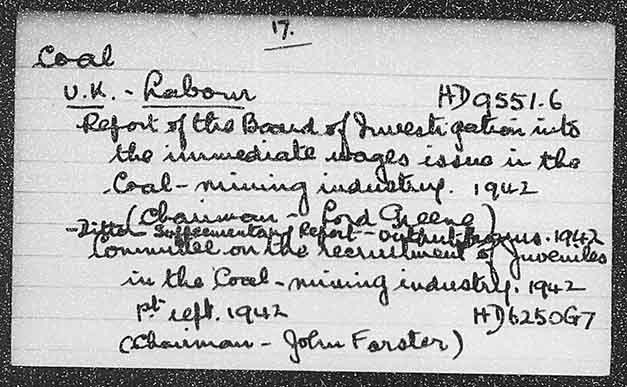 17.
Coal
U.K. - Labour HD9551.6
Report of the Board of Investigation into
the immediate wages issue in the
Coal-mining industry. 1942
(Chairman - Lord Greene)
- Ditto - Supplementary Report - Output Bonus. 1942
Committee on the recruitment of Juveniles
in the Coal-mining industry. 1942
1st rept. 1942 HD6250G7
(Chairman - John Forster)